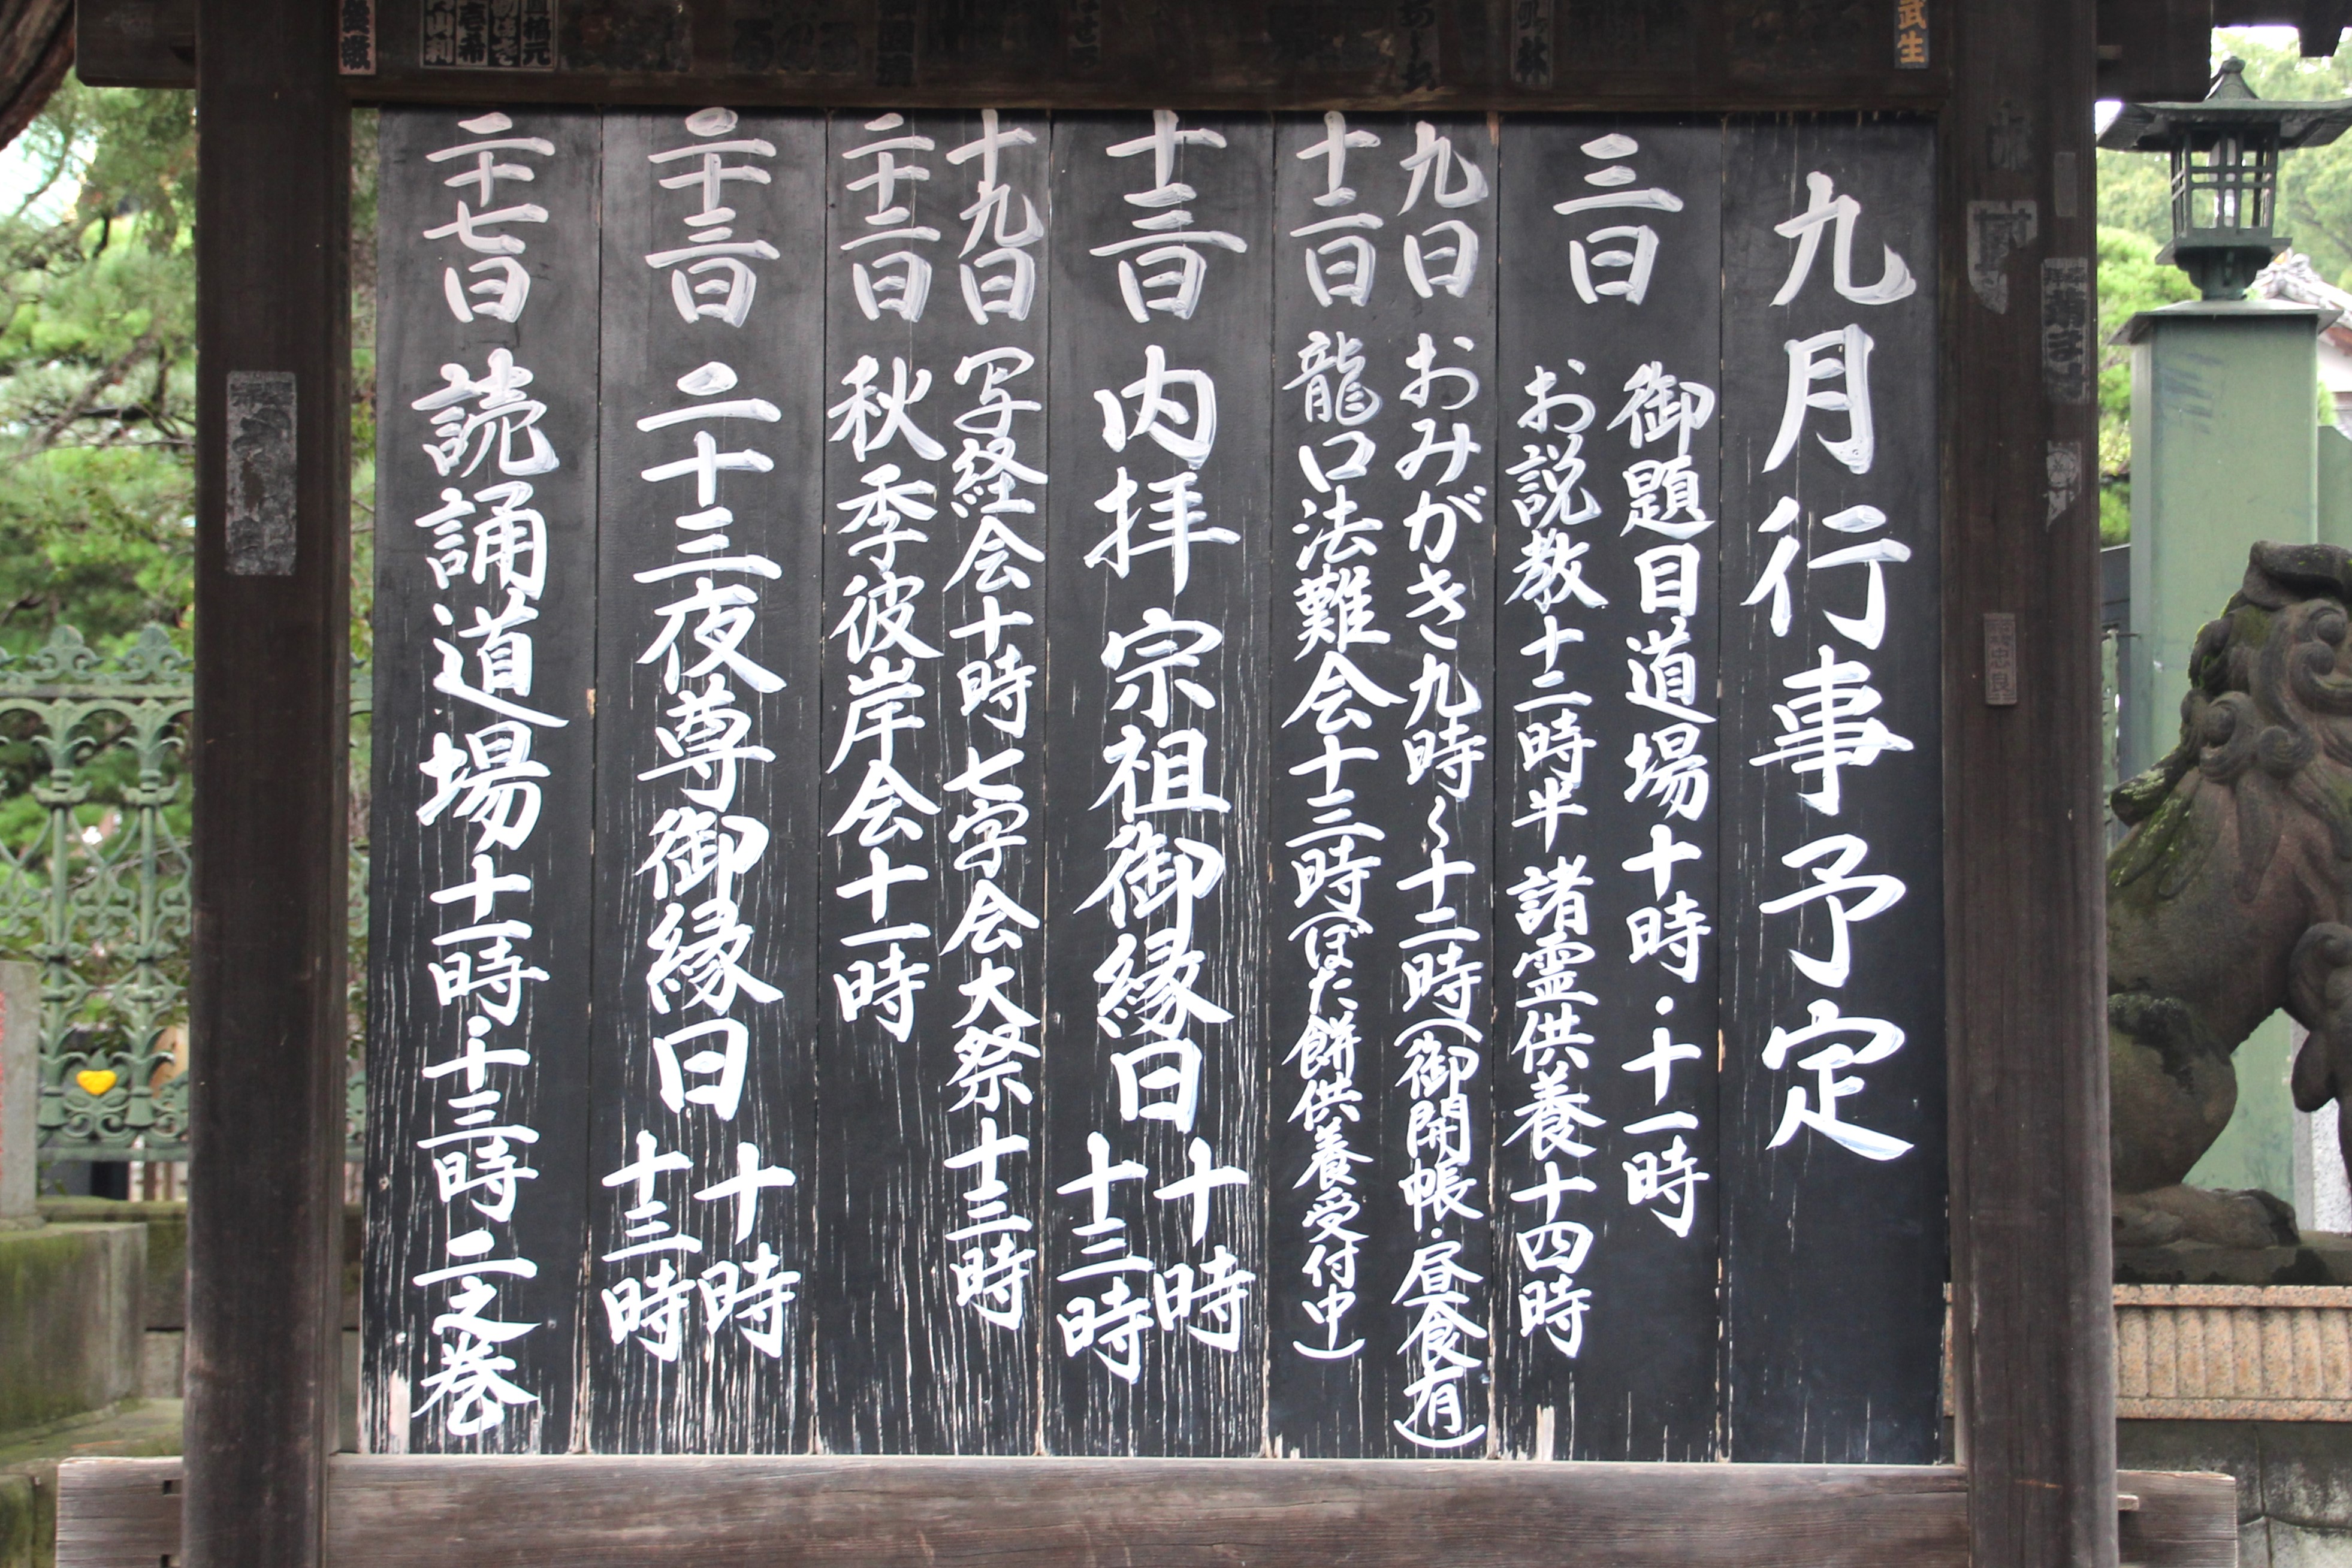 九月行事予定
三日
御題目道場十時・十一時
お説教十二時半 諸霊供養十四時
九日 おみがき九時〜十二時(御開帳・昼食有)
十二日 龍口法難会十三時(ぼた餅供養受付中)
十三日 内拝 宗祖御縁日 十時
十三時
十九日 写経会十時 七字会大祭十三時
二十二日 秋季彼岸会十一時
二十三日 二十三夜尊御縁日 十時
十三時
二十七日 読誦道場十一時・十三時 二之巻
武生